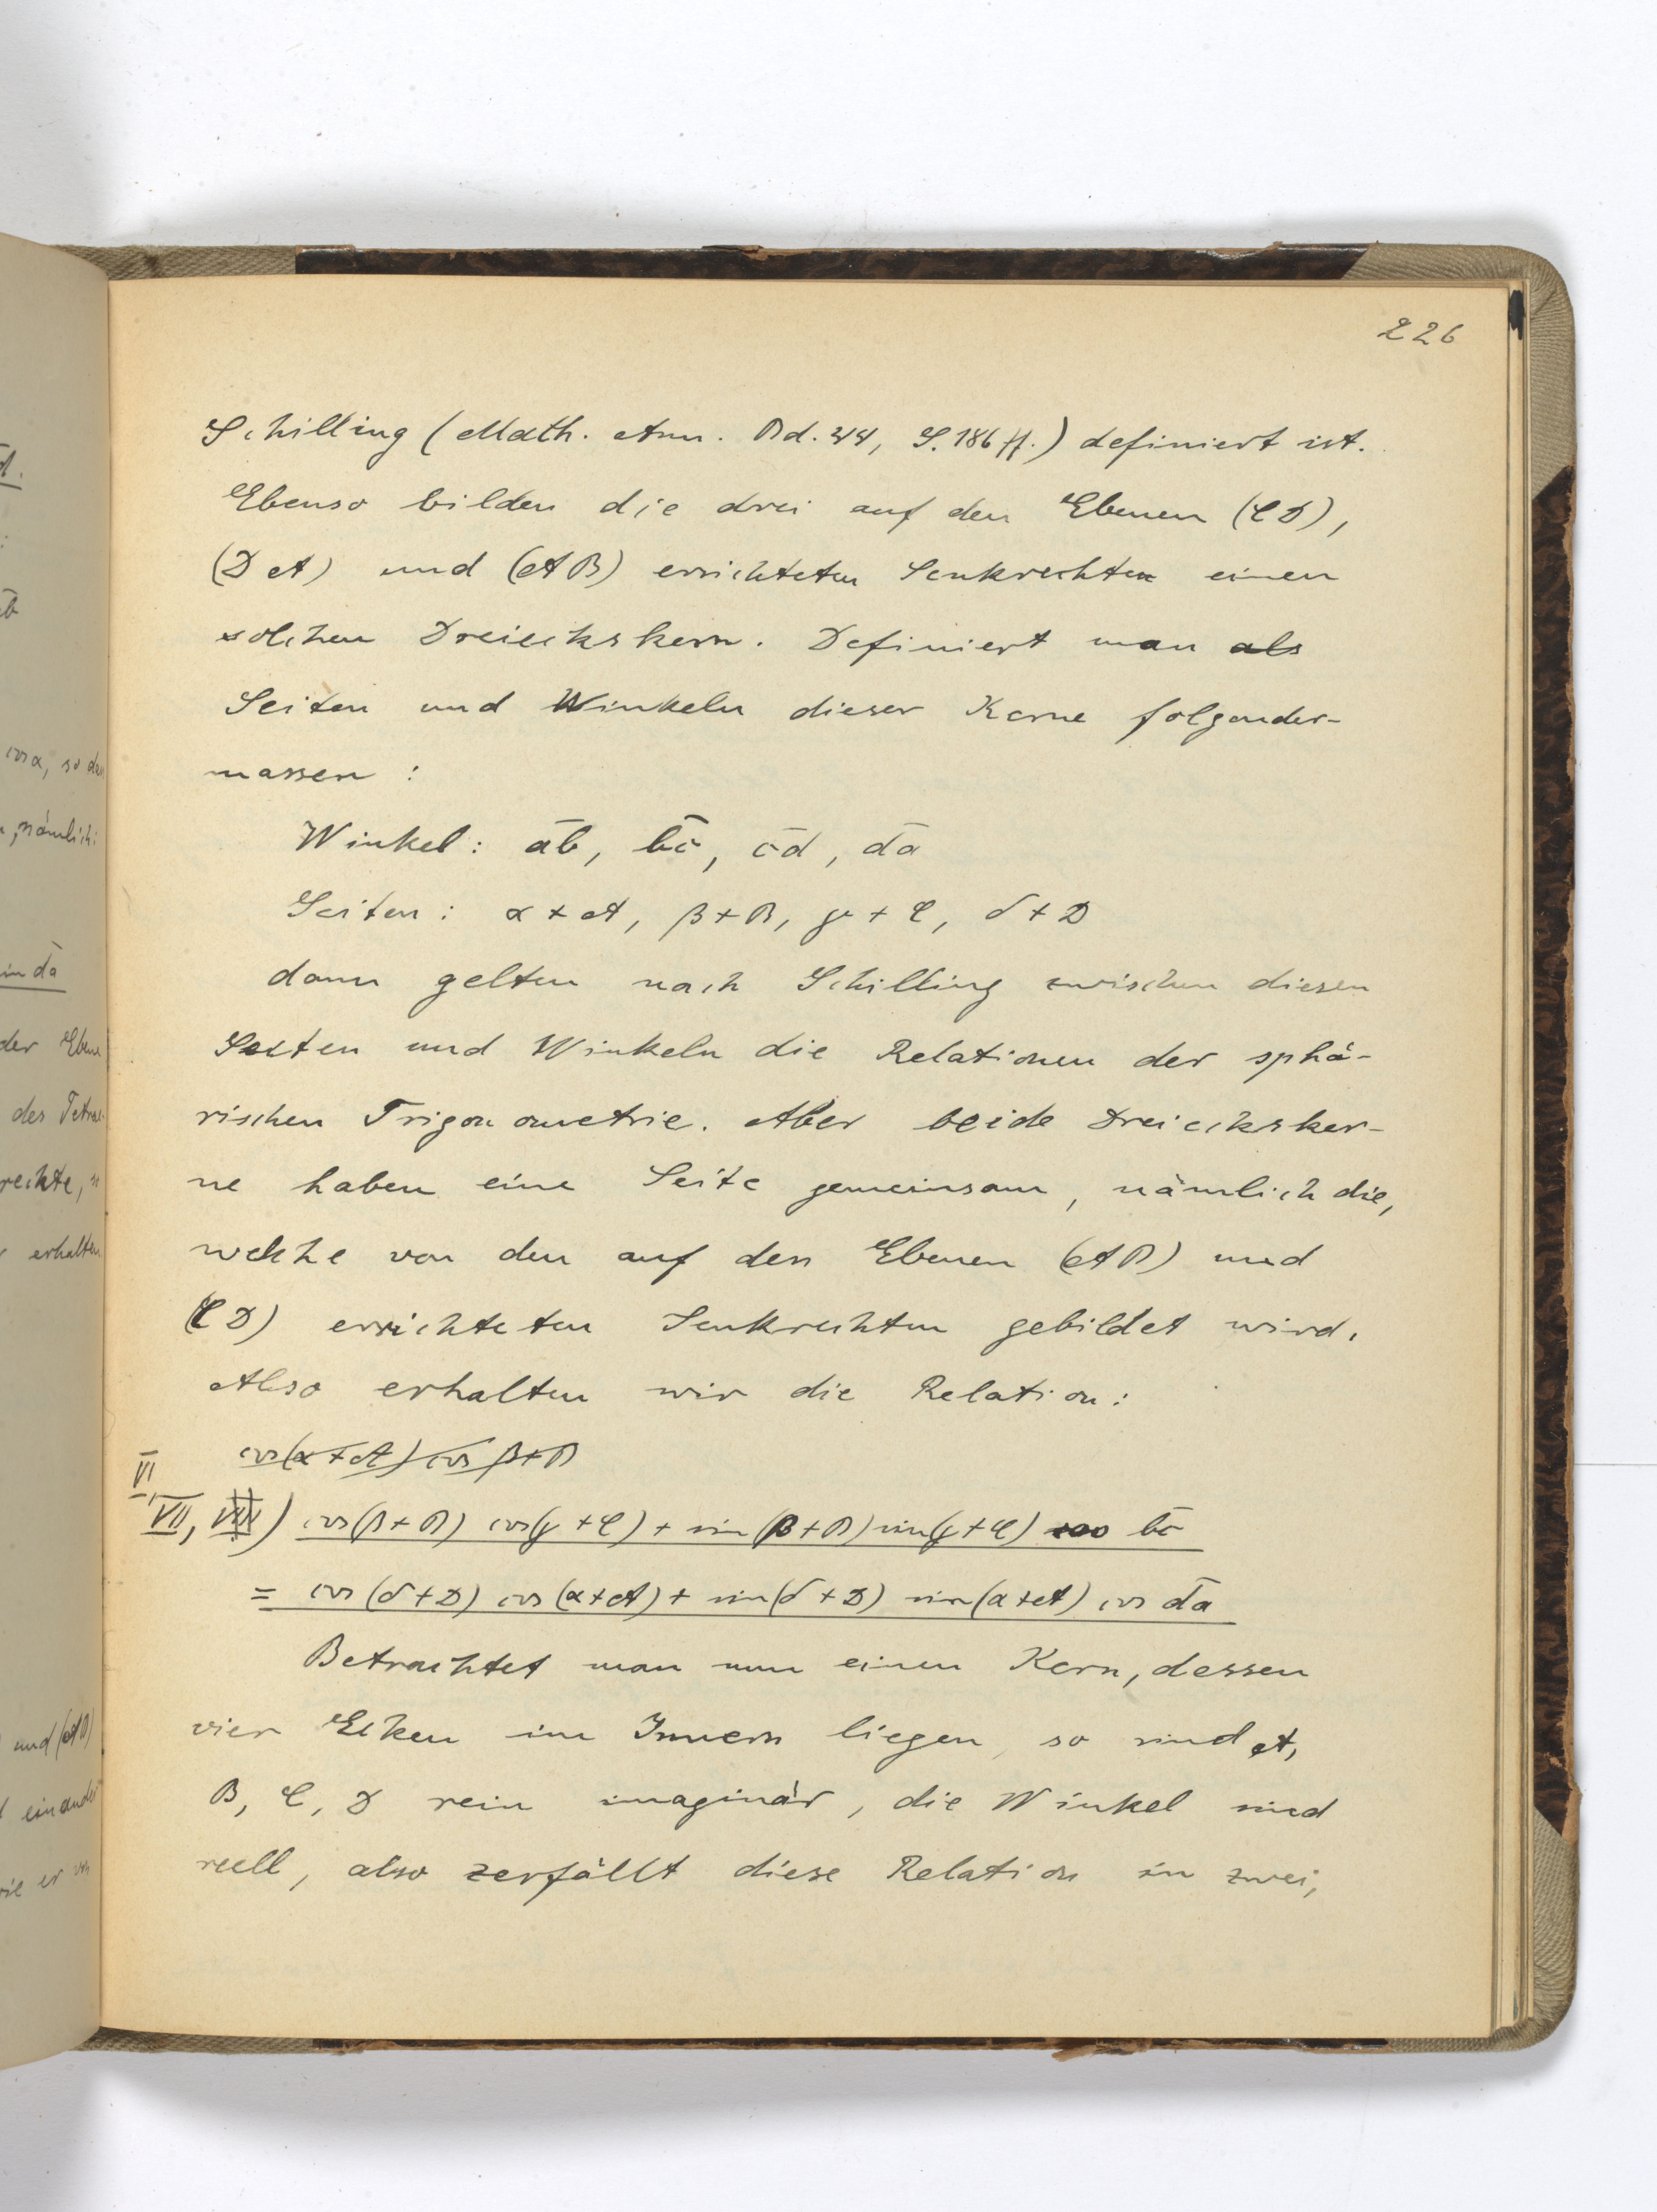 226
Schilling (Math. Ann. Bd. 44, S. 186 ff.) definiert ist.
Ebenso bilden die drei auf den Ebenen (CD),
(DA) und (AB) errichteten Senkrechten einen
solchen Dreieckskern. Definiert man als
Seiten und Winkeln dieser Kerne folgender-
massen :
Winkel : a̅b, b̅c, c̅d, d̅a
Seiten : α + A, β + B, γ + C, δ + D
dann gelten nach Schilling zwischen diesen
Seiten und Winkeln die Relationen der sphä-
rischen Trigonometrie. Aber beide Dreiecksker-
ne haben eine Seite gemeinsam, nämlich die,
welche von den auf den Ebenen (AB) und
(CD) errichteten Senkrechten gebildet wird.
Also erhalten wir die Relation :
cos(α + A) cos β + B
VI,
VII, VIII) cos(β + B) cos(γ + C) + sin(β + B) sin(γ + C) cos b̅c
= cos(δ + D) cos(α + A) + sin(δ + D) sin(α + A) cos d̅a
Betrachtet man nun einen Kern, dessen
vier Ecken im Innern liegen, so sind A,
B, C, D rein imaginär, die Winkel sind
reell, also zerfällt diese Relation in zwei,
cos α, so das
, nämlich :
sin d̅a
der Ebene
des Tetrae-
rechte,
erhalten
und (AB)
einander